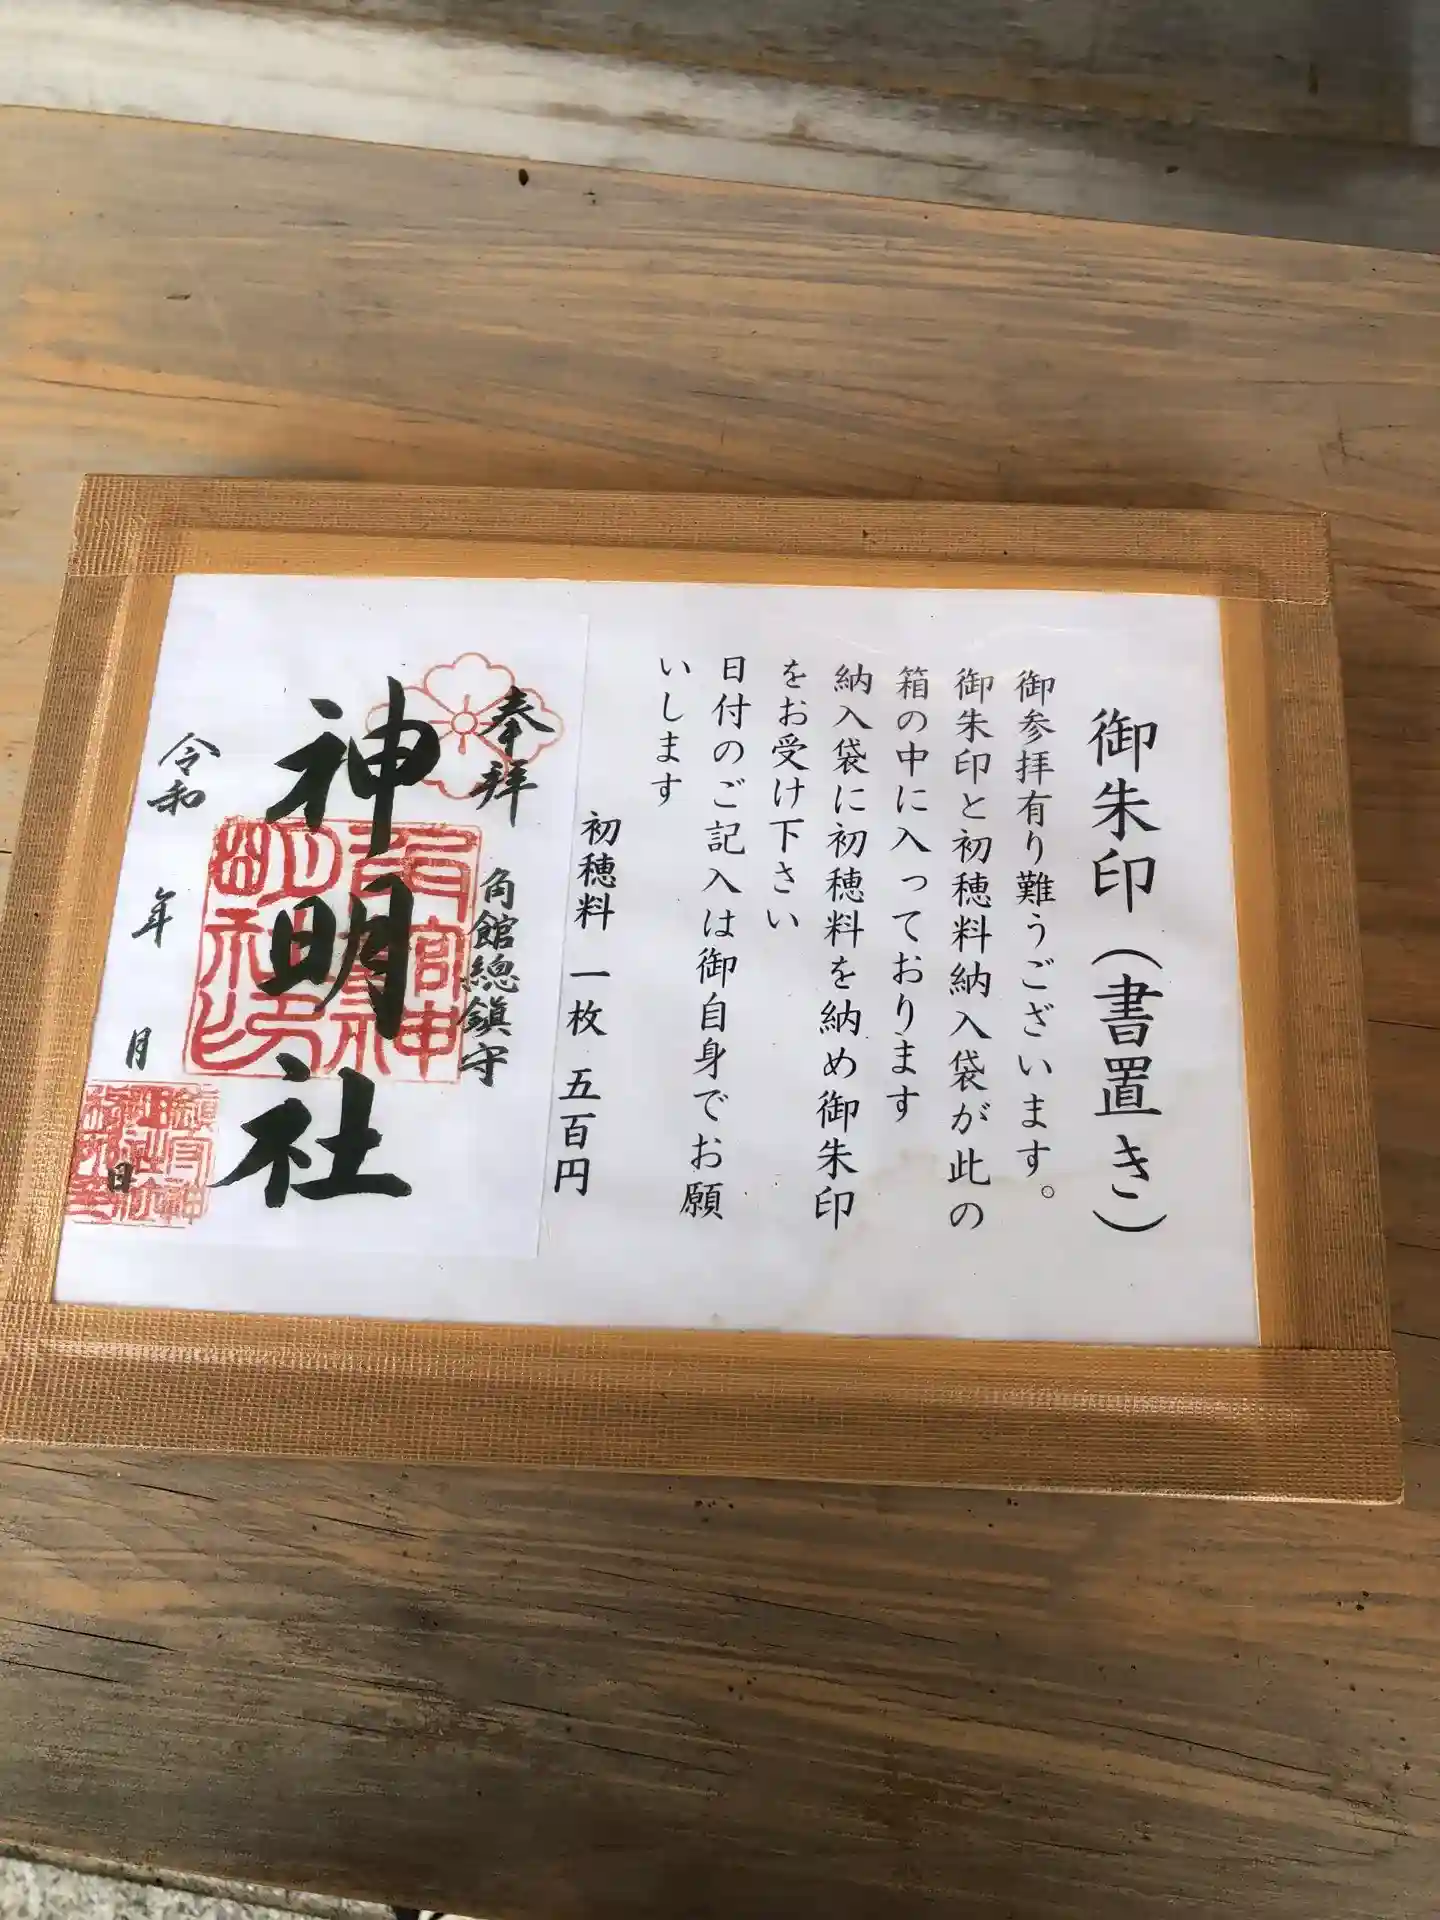 御朱印(書置き)
御参拝有り難うございます。
御朱印と初穂料納入袋が此の
箱の中に入っております
納入袋に初穂料を納め御朱印
をお受け下さい
日付のご記入は御自身でお願
いします
初穂料 一枚 五百円
奉拝 角館總鎮守
神明社
令和 年 月 日